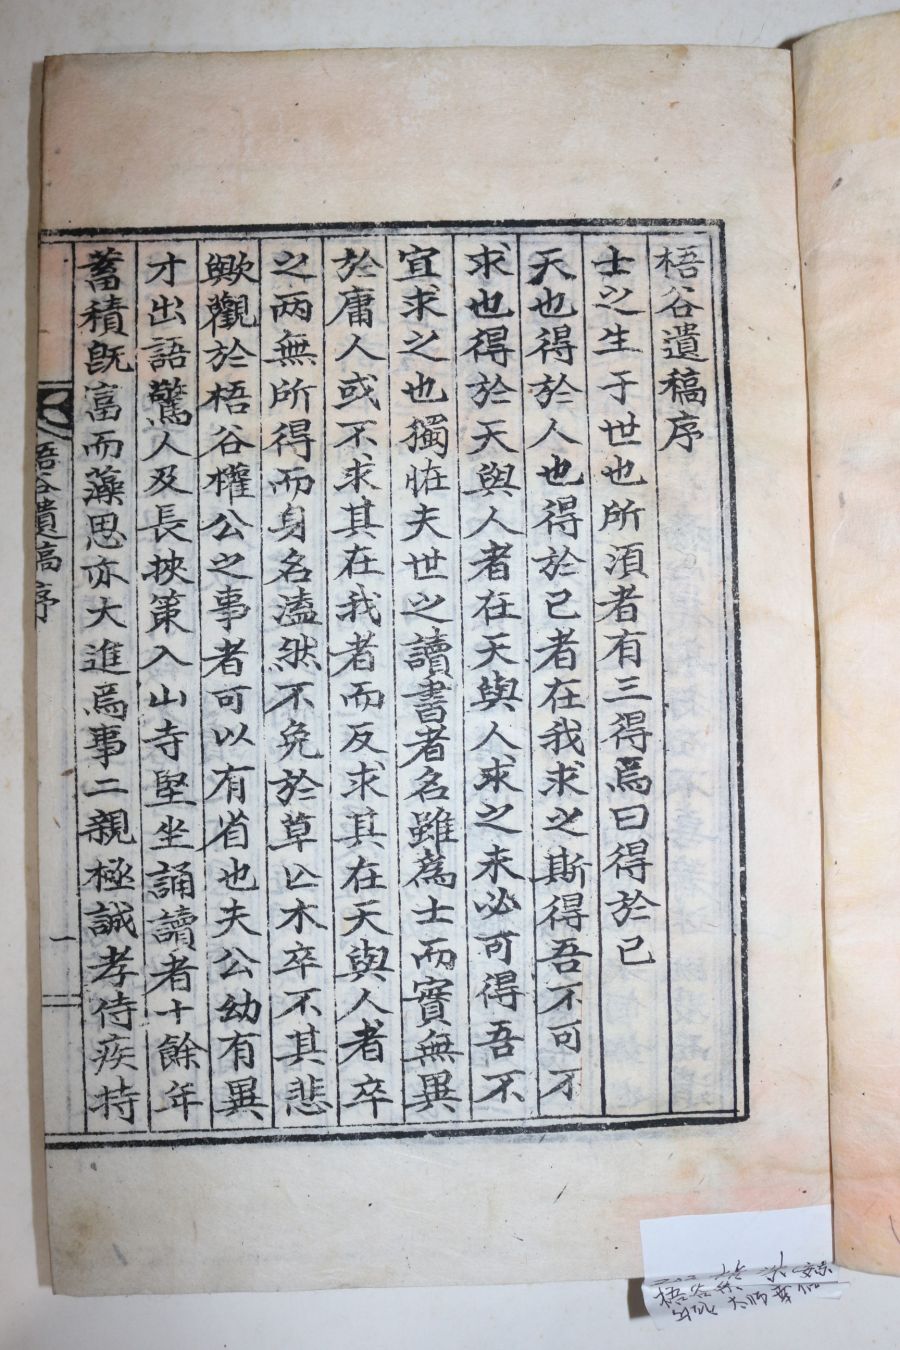 梧谷遺稿序
士之生于世也所須者有三得焉曰得於己
天也得於人也得於己者在我求之斯得吾不可不
求也得於天與人者在天與人求之未必可得吾不
宜求之也獨恠夫世之讀書者名雖爲士而實無異
於庸人或不求其在我者而反求其在天與人者卒
之两無所得而身名溘然不免於草亡木卒不其悲
歟觀於梧谷權公之事者可以有省也夫公幼有異
才出語驚人及長挾策入山寺堅坐誦讀者十餘年
蓄積旣富而藻思亦大進焉事二親極誠孝侍疾持
梧谷遺稿序
一